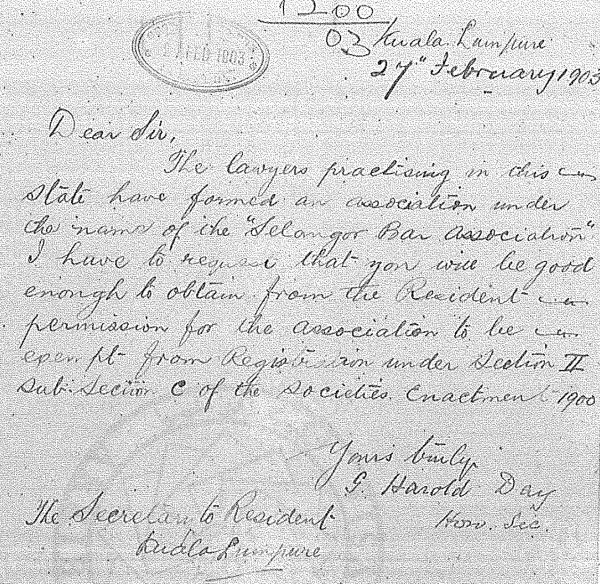 1200
03
FEB 1903
Kuala Lumpure
27" February 1903
Dear Sir,
The lawyers practising in this
state have formed an association under
the name of the "Selangor Bar Association"
I have to request that you will be good
enough to obtain from the Resident
permission for the association to be
exempt from Registration under Section II
sub. section C of the Societies Enactment 1900
Yours truly
G. Harold Day
Hon. Sec.
The Secretary to Resident
Kuala Lumpure